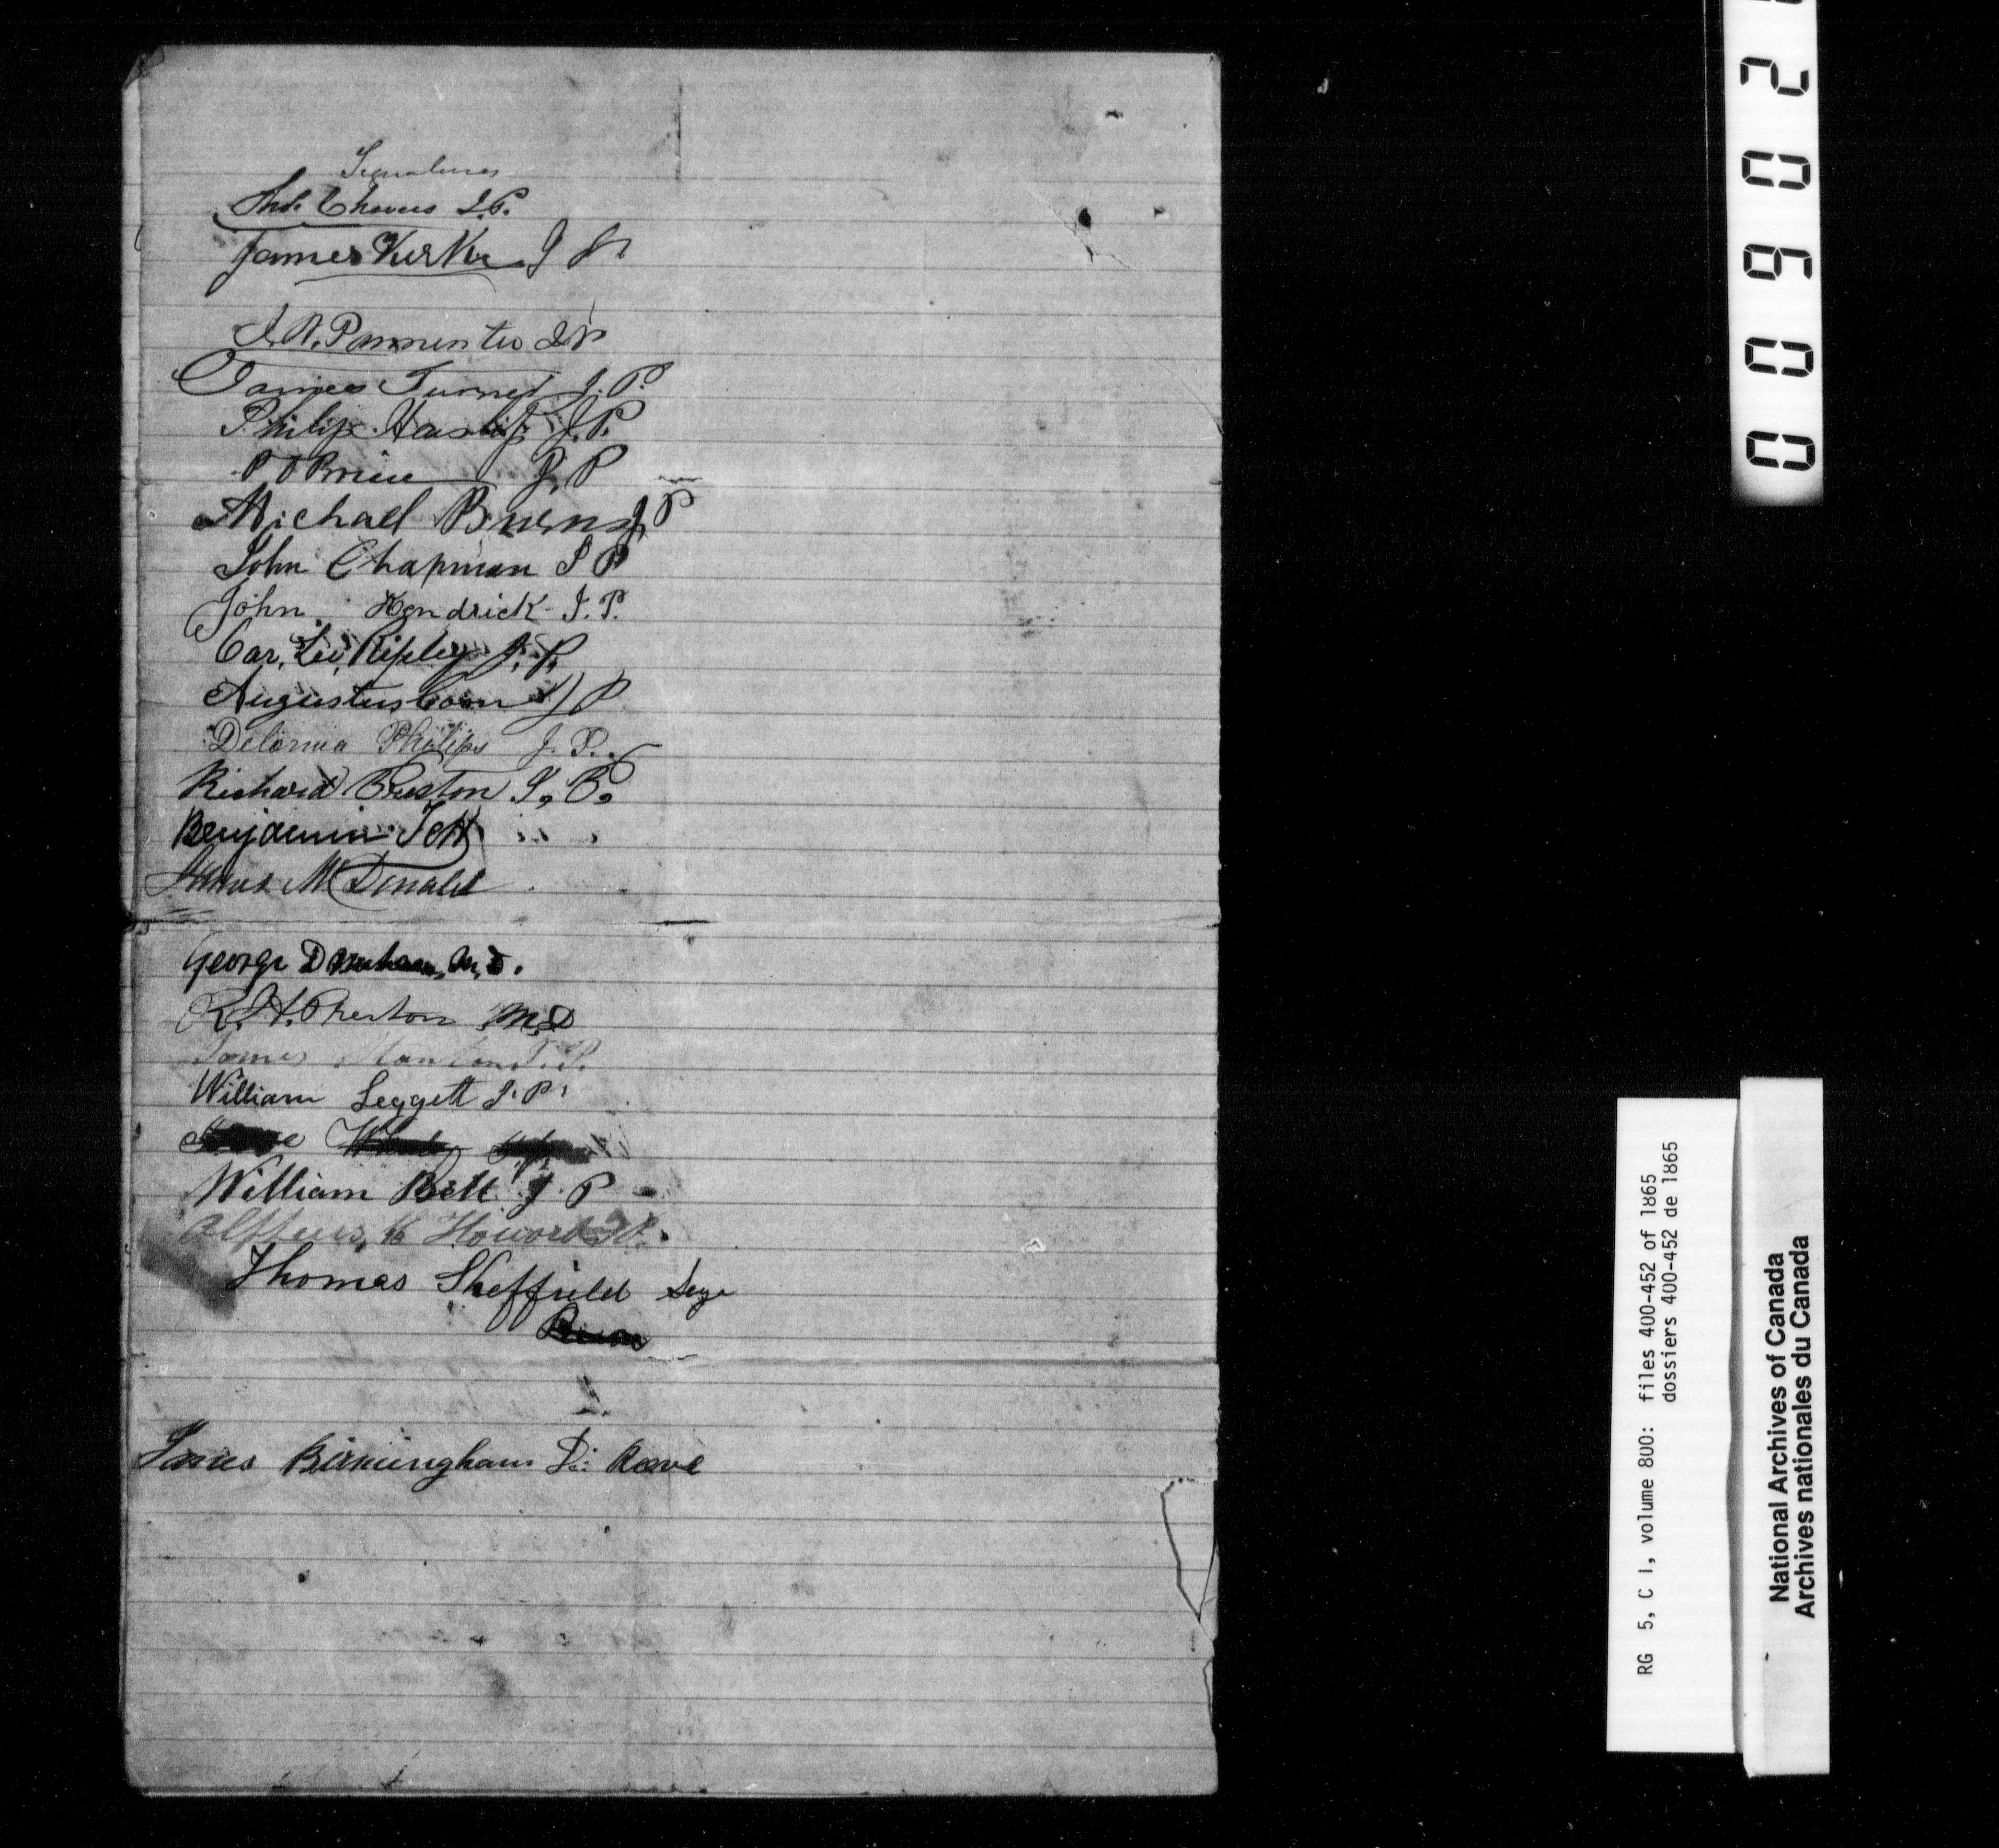 Signatures
Thos. Chavers J.P.
James Kirk J P
J. R. Parmenter J P
James Turner J. P.
Philip Haskip J. P.
P. O Brien J. P
Michael Burns J P
John Chapman J P
John Kendrick J. P.
Car. Lee Ripley J. P.
Augustus Coon J P
Delorma Philips J. P.
Richard Preston J. P.
Benjamin Tett " "
James McDonald
George Denham, M. D.
R. H. Preston M. D
James Stanton J. P.
William Leggett J. P.
William Bell J P
Alpheus Howard J P.
Thomas Sheffield
James Birmingham D: Reeve
0 0 9 0 2
RG 5, C 1, volume 800: files 400-452 of 1865
dossiers 400-452 de 1865
National Archives of Canada
Archives nationales du Canada